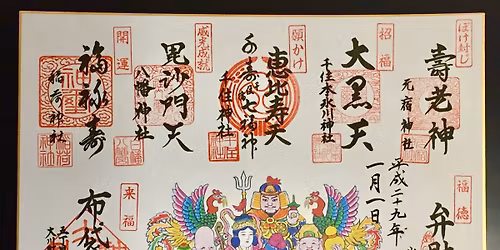 ぼけ封じ
壽老神
元宿神社
招福
大黒天
千住本氷川神社
願かけ
恵比寿天
千寿七福神
千住神社
威光成就
毘沙門天
八幡神社
開運
福禄寿
稲荷神社
平成二十九年
一月一日
福徳
弁
来福
布袋